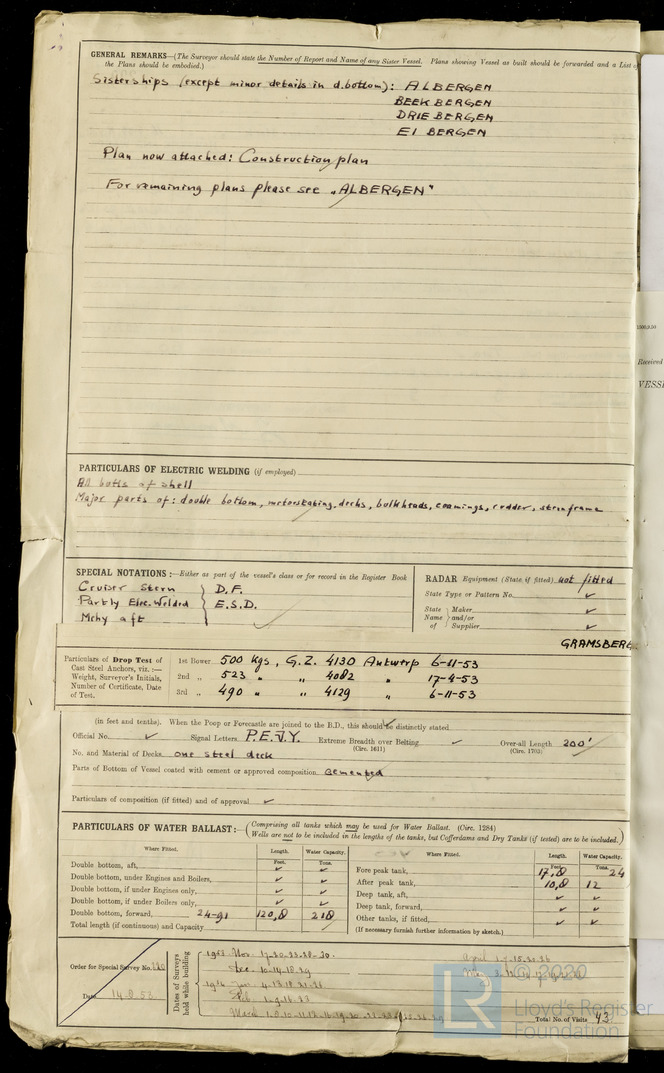 GENERAL REMARKS—(The Surveyor should state the Number of Report and Name of any Sister Vessel. Plans showing Vessel as built should be forwarded and a List of
the Plans should be embodied.)
Sisterships (except minor details in d.bottom): ALBERGEN
BEEK BERGEN
DRIE BERGEN
EI BERGEN
Plan now attached: Construction plan
For remaining plans please see „ALBERGEN"
PARTICULARS OF ELECTRIC WELDING (if employed)
All butts of shell
Major parts of: double bottom, motorseating, decks, bulkheads, coamings, rudder, sternframe
SPECIAL NOTATIONS:—Either as part of the vessel's class or for record in the Register Book
Cruiser Stern } D.F.
Partly Elec. Welded } E.S.D.
Mchy aft
RADAR Equipment (State if fitted) not fitted
State Type or Pattern No.
State Maker
Name and/or
of Supplier
GRAMSBERG
Particulars of Drop Test of
Cast Steel Anchors, viz.:—
Weight, Surveyor's Initials,
Number of Certificate, Date
of Test.
1st Bower 500 kgs, G.Z. 4130 Antwerp 6-11-53
2nd „ 523 „ „ 4082 „ 17-4-53
3rd „ 490 „ „ 4129 „ 6-11-53
(in feet and tenths). When the Poop or Forecastle are joined to the B.D., this should be distinctly stated
Official No. Signal Letters P.E.V.Y. Extreme Breadth over Belting Over-all Length 200'
(Circ. 1611) (Circ. 1703)
No. and Material of Decks one steel deck
Parts of Bottom of Vessel coated with cement or approved composition cemented
Particulars of composition (if fitted) and of approval
PARTICULARS OF WATER BALLAST:— (Comprising all tanks which may be used for Water Ballast. (Circ. 1284)
Wells are not to be included in the lengths of the tanks, but Cofferdams and Dry Tanks (if tested) are to be included.)
Where Fitted. Length. Water Capacity. Where Fitted. Length. Water Capacity.
Feet. Tons. Feet. Tons.
Double bottom, aft,
Double bottom, under Engines and Boilers,
Double bottom, if under Engines only,
Double bottom, if under Boilers only,
Double bottom, forward, 24-91 120,8 218
Total length (if continuous) and Capacity
Fore peak tank, 17,8 24
After peak tank, 10,8 12
Deep tank, aft,
Deep tank, forward,
Other tanks, if fitted,
(If necessary furnish further information by sketch.)
Order for Special Survey No.
Date 14.2.53
Dates of Surveys
held while building
1953 Nov. 17-20-23-28-30.
Dec. 10-14-18-29
Total No. of Visits 43
Received
VESSE
© 2020
Lloyd's Register
Foundation
LR